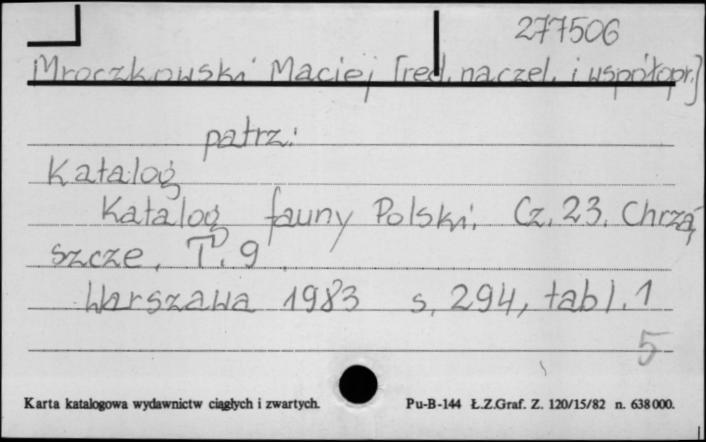 277506
Mroczkowski Maciej [red. naczel. i współopr.]
patrz:
Katalog
Katalog fauny Polski. Cz. 23. Chrzą
szcze. T. 9.
Warszawa 1983 s. 294, tabl. 1
5
Karta katalogowa wydawnictw ciągłych i zwartych. Pu-B-144 Ł.Z.Graf. Z. 120/15/82 n. 638000.